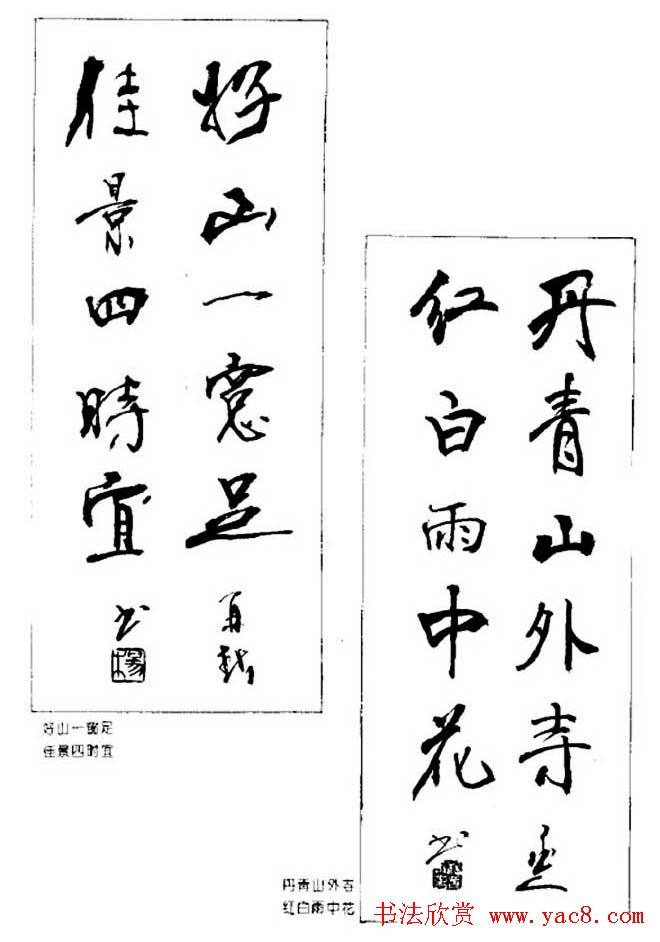 好山一窓足
佳景四時宜
书
好山一窗足
佳景四时宜
丹青山外寺
红白雨中花
书
丹青山外寺
红白雨中花
书法欣赏 www.yac8.com